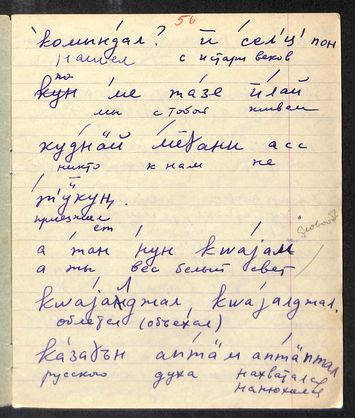 56
комында́л? ӣ се́л'ц' пон
нашел с истари веков
по
кун ме та́зе ӣлай
мы с тобой живем
ку́днӓй ме̄ꞗани асс
никто к нам не
тӱ́кун,
приезжал
ет
а та́н нун кwaјам
а ты весь белый свет
кwaјалджал, кwaјалджал.
облетел (объехал)
ка́заꞗън аптӓм аптӓптал
русского духа нахватался
нанюхался